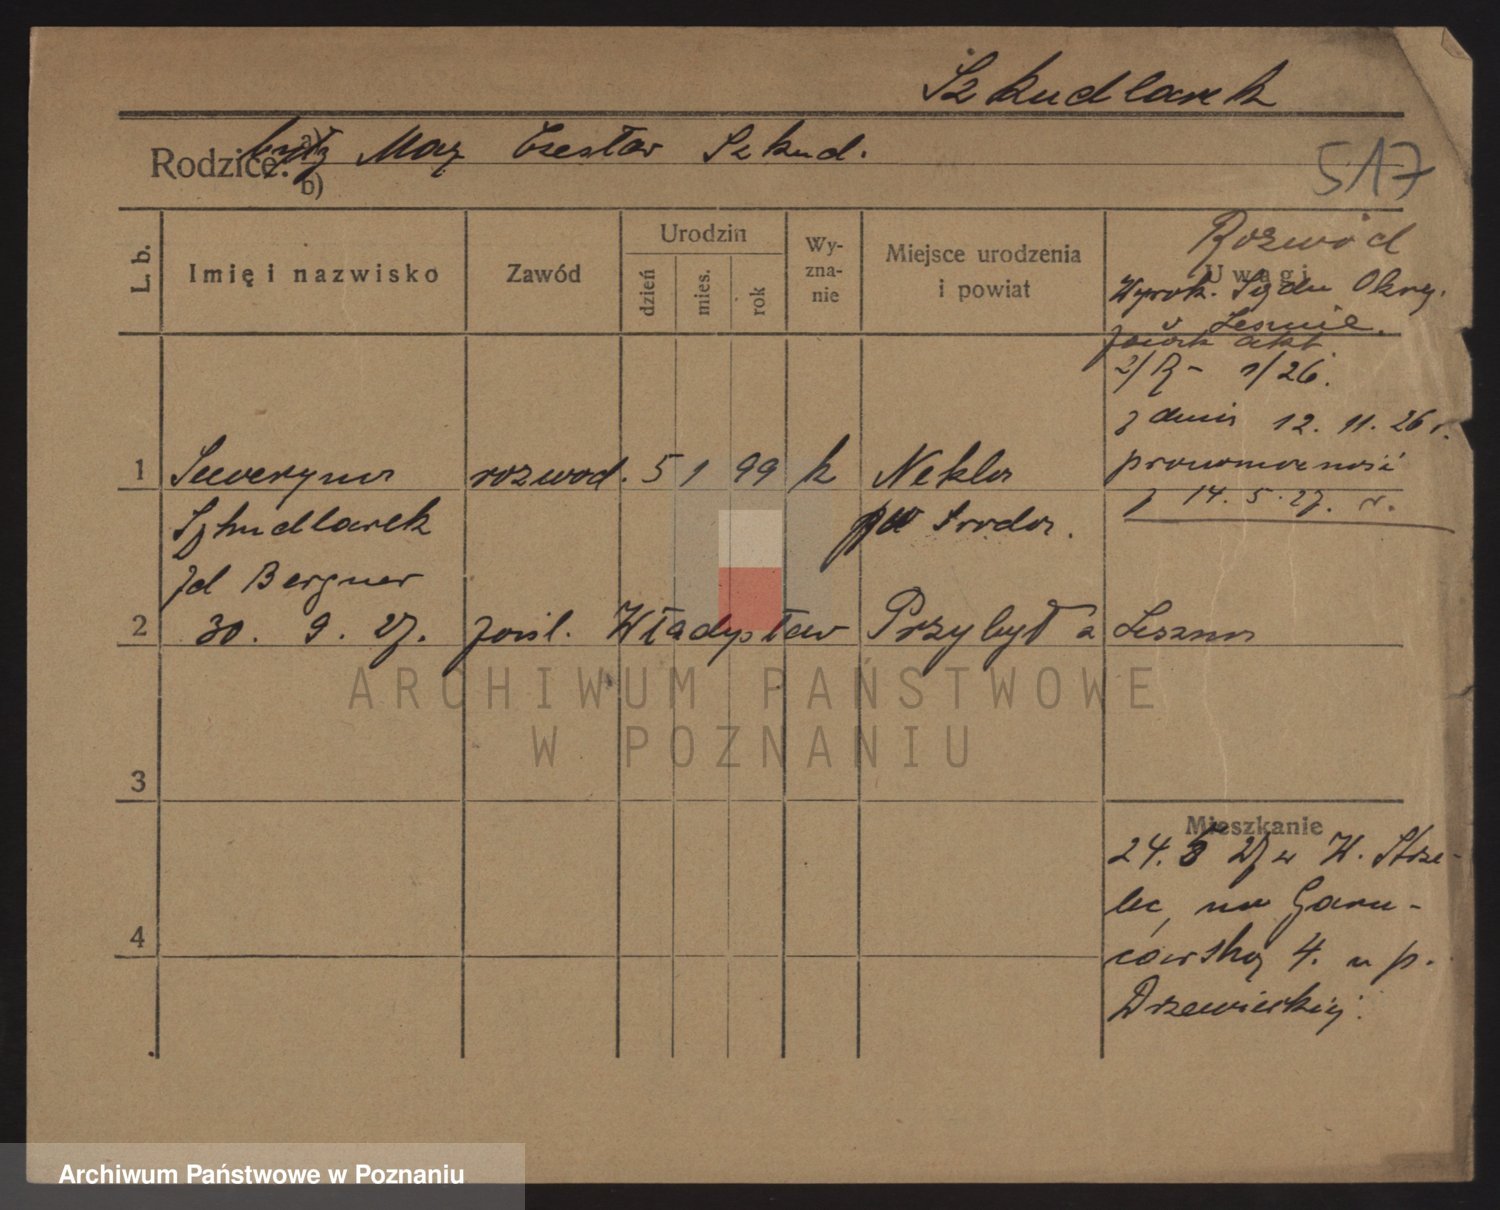 Szkudlarek
Rodzice: a) były Mąż Czesław Szkud.
b)
517
L. b.
Imię i nazwisko
Zawód
Urodzin
dzień
mies.
rok
Wy-
zna-
nie
Miejsce urodzenia
i powiat
Uwagi
Rozwód
Wyrok. Sądu Okrę.
w Lesznie.
akt
2/R - 1/26.
z dnia 12. 11. 26 r.
prawomocność
z 14. 5. 27. r.
1 Seweryna rozwod. 5 1 99 k Nekla
Szkudlarek Środa.
zd Bergner
2 30. 9. 27. zaśl. Władysław Przybył z Leszna
3
4
Mieszkanie
24. 8 27 w W. Strze-
lec, na Garn-
carską 4. u p.
Drzewieckiej.
ARCHIWUM PAŃSTWOWE
W POZNANIU
Archiwum Państwowe w Poznaniu